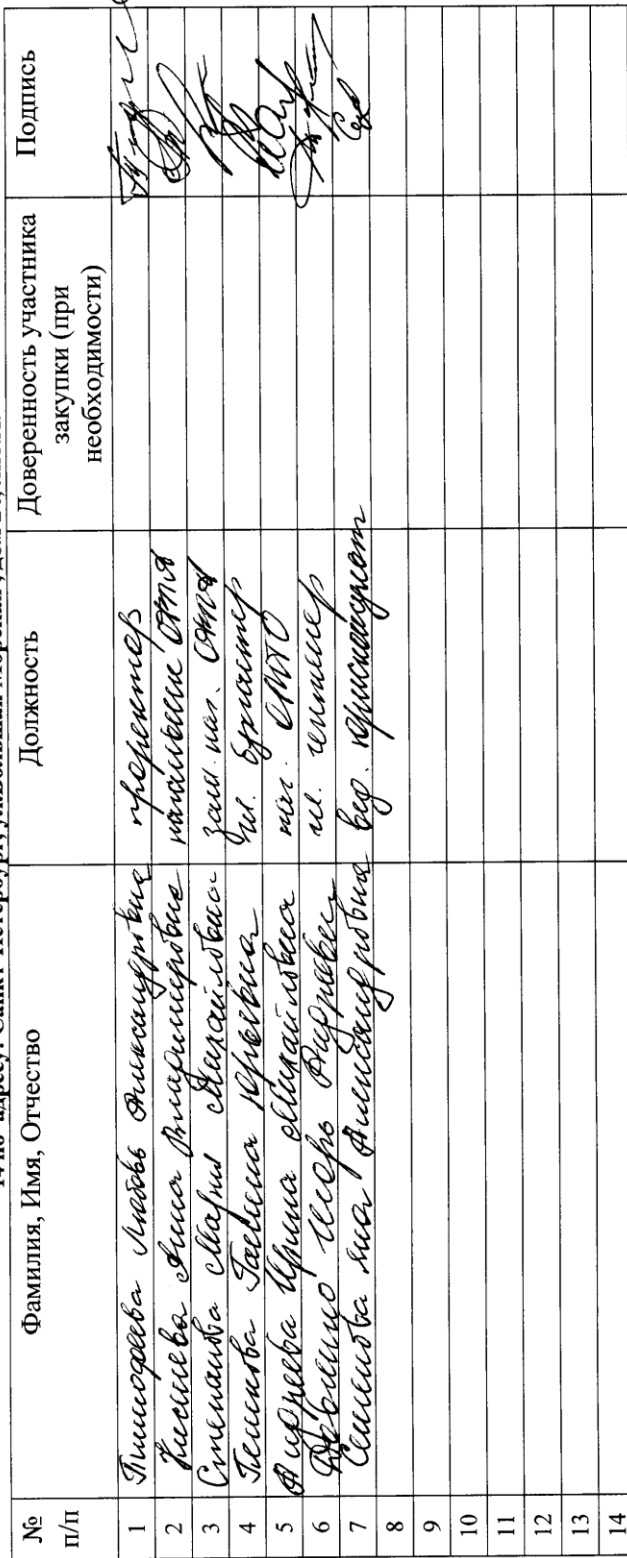 14 по адресу: Санкт-Петербург, ул. Большая Морская, дом
№ п/п Фамилия, Имя, Отчество Должность Доверенность участника закупки (при необходимости) Подпись
1 Тимофеева Любовь Александровна проректор
2 Анна Владимировна начальник
3 Степанова Мария Михайловна зам. нач.
4 Галина Юрьевна гл. бухгалтер
5 Андреева Ирина Михайловна нач. ОМТО
6 Игорь Андреевич гл. инженер
7 Семенова Яна Александровна вед. юрисконсульт
8
9
10
11
12
13
14